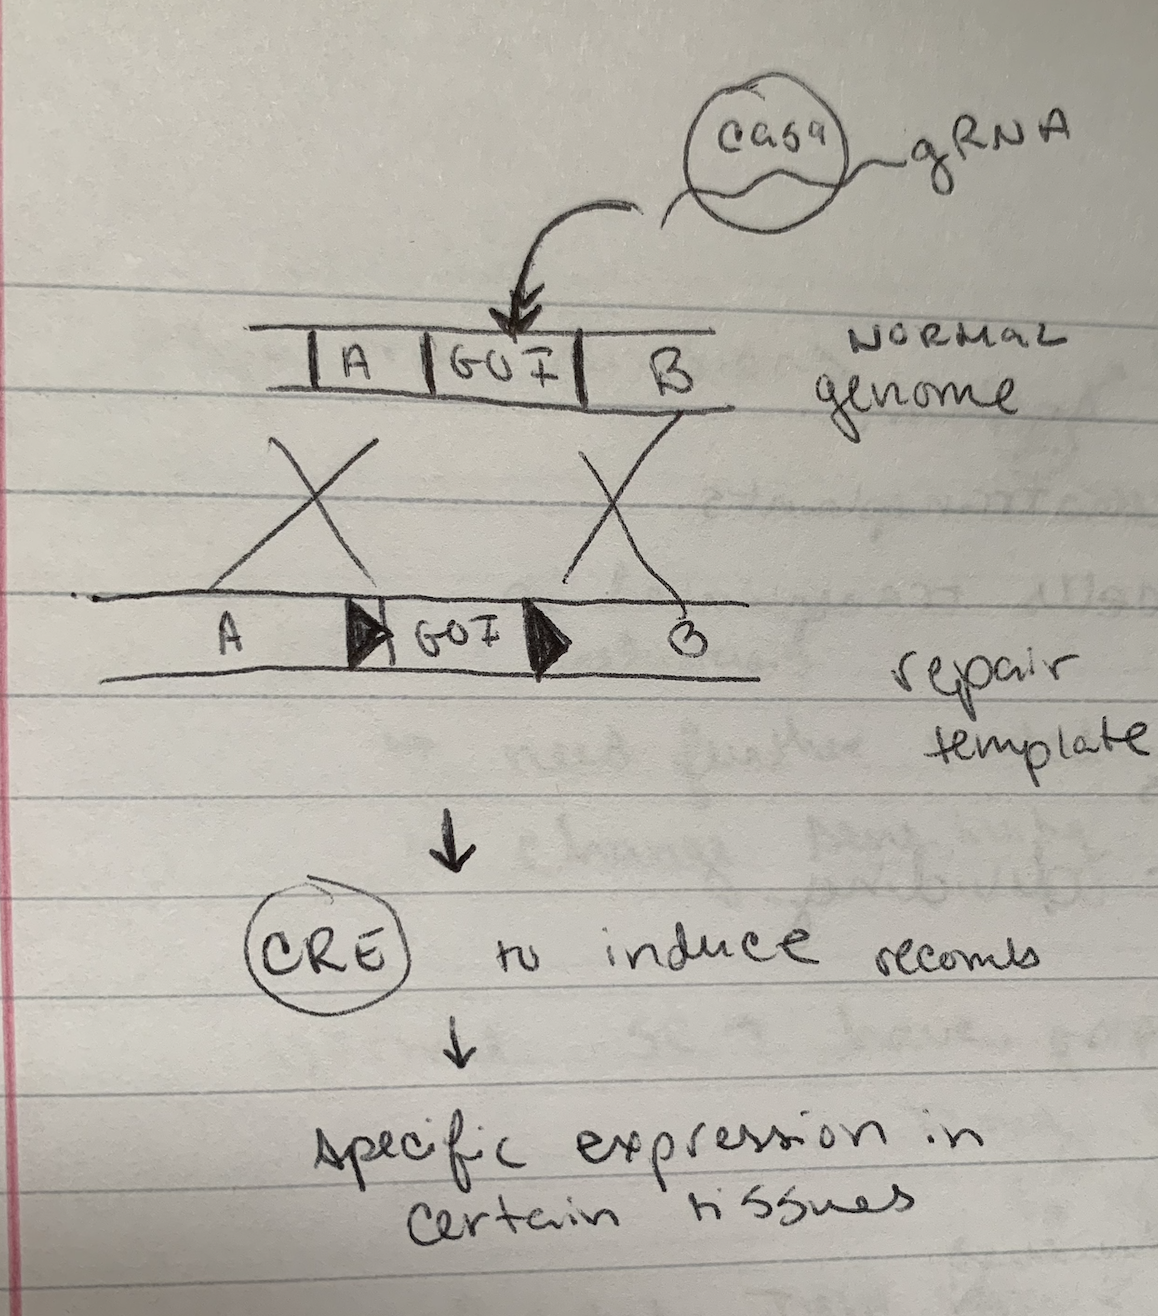 cas9
gRNA
NORMAL
genome
A GOI B
A GOI B
repair
template
CRE to induce recomb
specific expression in
certain tissues